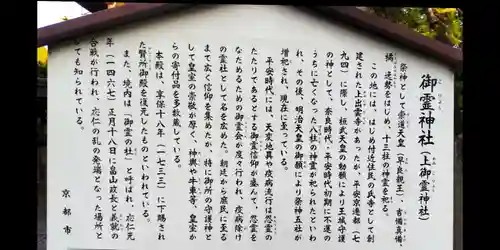 御霊神社(上御霊神社)
祭神として崇道天皇(早良親王)、吉備真備、
橘 逸勢をはじめ、十三社の神霊を祀る。
この地には、はじめ付近住民の氏寺として創
建された上出雲寺があったが、平安京遷都(七
九四)に際し、桓武天皇の勅願により王城守護
の神として、奈良時代・平安時代初期に不運の
うちに亡くなった八柱の神霊が祀られたといわ
れ、その後、明治天皇の御願により祭神五社が
増祀され、現在に至っている。
平安時代には、天変地異や疫病流行は悪霊の
たたりであるとする御霊信仰が盛んで、悪霊を
なだめるための御霊会が度々行われ、疫病除け
の霊社として名を広めた。朝廷から庶民に至る
まで広く信仰を集めたが、特に御所の守護神と
して皇室の崇敬が厚く、神輿や牛車等、皇室か
らの寄付品を多数蔵している。
本殿は、享保十八年(一七三三)に下賜され
た賢所御殿を復元したものといわれている。
また、境内は「御霊の杜」と呼ばれ、応仁元
年(一四六七)正月十八日に畠山政長と義就の
合戦が行われ、応仁の乱の発端となった場所と
しても知られている。
京都市